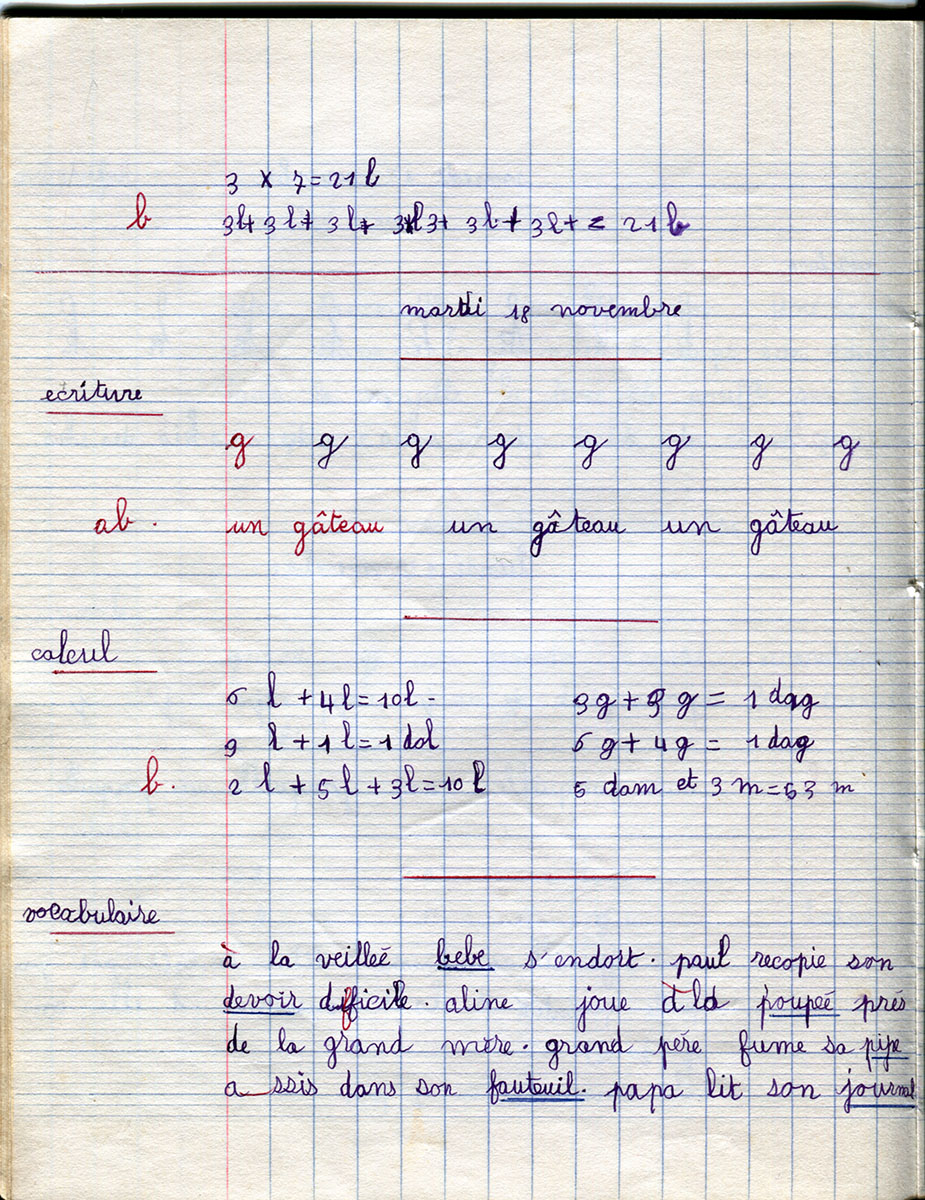 3 x 7 = 21 l
b 3l+ 3l+ 3l+ 3l3+ 3l+ 3l+ = 21 l
mardi 18 novembre
ecriture
g g g g g g g g
ab. un gâteau un gâteau un gâteau
calcul
6 l + 4 l = 10 l - 9 g + 9 g = 1 dag
9 l + 1 l = 1 dal 6 g + 4 g = 1 dag
b. 2 l + 5 l + 3 l = 10 l 6 dam et 3 m = 63 m
vocabulaire
à la veilleé bebe s'endort. paul recopie son
devoir difficile. aline joue à la poupeé prés
de la grand mère. grand pére fume sa pipe
a ssis dans son fauteuil. papa lit son journal